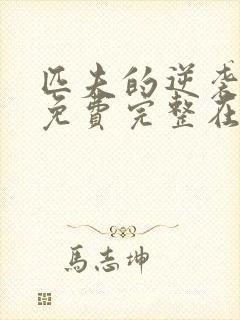 匹夫的逆袭
免費完整在
馬志坤